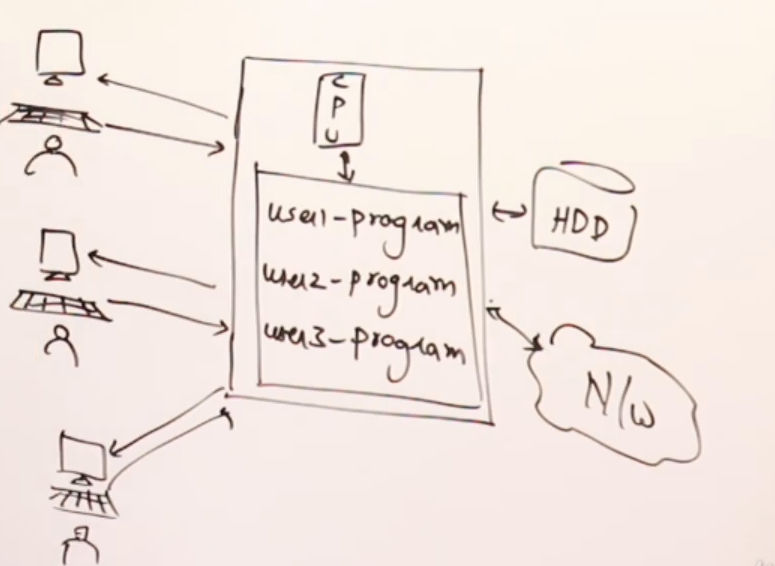 CPU
user1-program
user2-program
user3-program
HDD
N/W